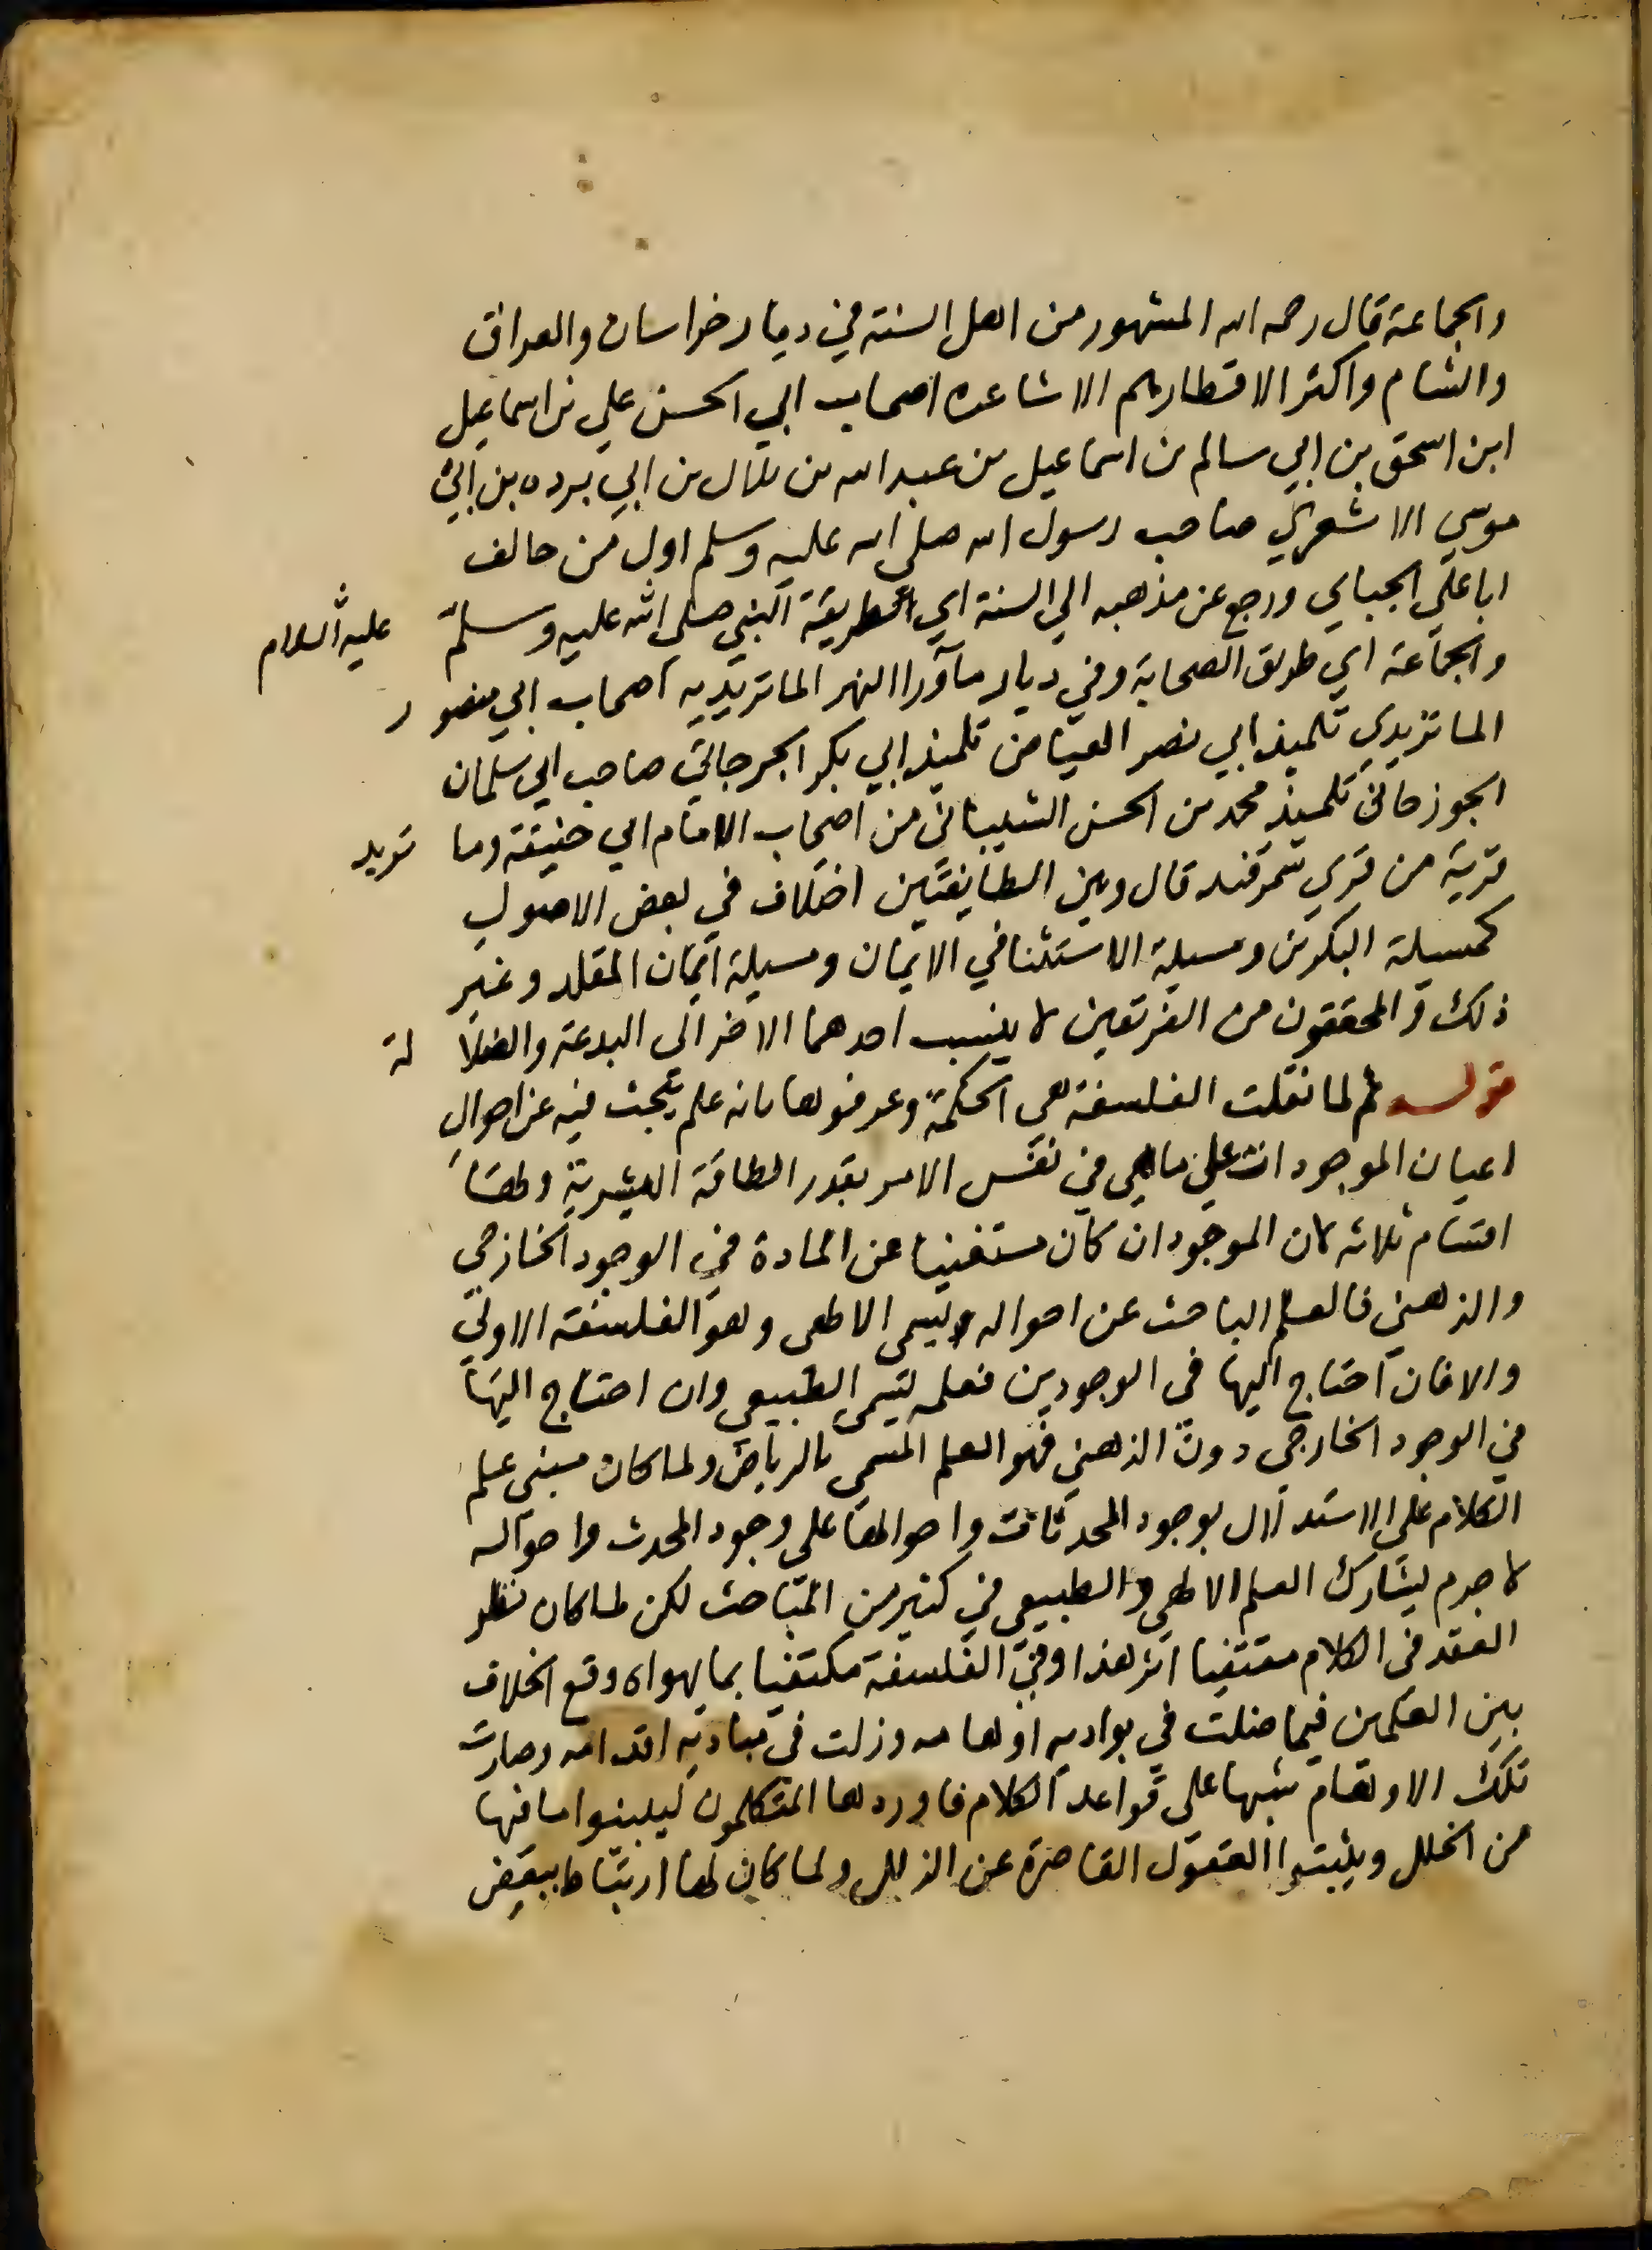 والجماعة قال رحمه الله المشهور من اهل السنة في ديار خراسان والعراق
والشام واكثر الاقطار هم الاشاعره اصحاب ابي الحسن علي بن اسماعيل
ابن اسحق بن ابي سالم بن اسماعيل بن عبد الله بن بلال بن ابي برده بن ابي
موسي الاشعري صاحب رسول الله صلي الله عليه وسلم اول من خالف
ابا علي الجباي ورجع عن مذهبه الي السنة اي طريقة النبي صلي الله عليه وسلم عليه السلام
والجماعة اي طريق الصحابة وفي ديار ماورا النهر الماتريديه اصحاب ابي منصور
الماتريدي تلميذ ابي نصر العياض تلميذ ابي بكر الجرجاني صاحب ابي سلمان
الجوزجاني تلميذ محمد بن الحسن الشيباني من اصحاب الامام ابي حنيفة وما تريد
قرية من قري سمرقند قال وبين الطايفتين اختلاف في بعض الاصول
كمسيلة التكوين ومسيلة الاستثنا في الايمان ومسيلة ايمان المقلد وغير
ذلك والمحققون من الفريقين لا ينسب احدهما الاخر الى البدعة والضلا لة
قوله ثم لما نقلت الفلسفة هي الحكمة وعرفوها بانه علم يبحث فيه عن احوال
اعيان الموجودات علي ما هي في نفس الامر بقدر الطاقة البشرية ولها
اقسام ثلاثه لان الموجود ان كان مستغنيا عن المادة في الوجود الخارجي
والذهني فالعلم الباحث عن احواله يسمى الالهى وهو الفلسفة الاولي
والا فان احتاج اليها فى الوجودين فعلمه يسمى الطبيعي وان احتاج اليها
في الوجود الخارجى دون الذهني فهو العلم المسمى بالرياض ولما كان مبنى علم
الكلام على الاستدلال بوجود المحدثات واحوالها على وجود المحدث واحواله
لا جرم يشارك العلم الالهي والطبيعي في كثير من المباحث لكن لما كان نظر
العقد فى الكلام مقتفيا اثر هذا وفي الفلسفة مكتفيا بما يهواه وقع الخلاف
بين العلمين فيما ضلت في بواديه اوهامه وزلت في مباديه اقدامه وصارت
تلك الاوهام شبها على قواعد الكلام فاوردها المتكلمون ليبينوا ما فيها
من الخلل ويثبتوا العقول القاصرة عن الزلل ولما كان لها ارتباط ببعض